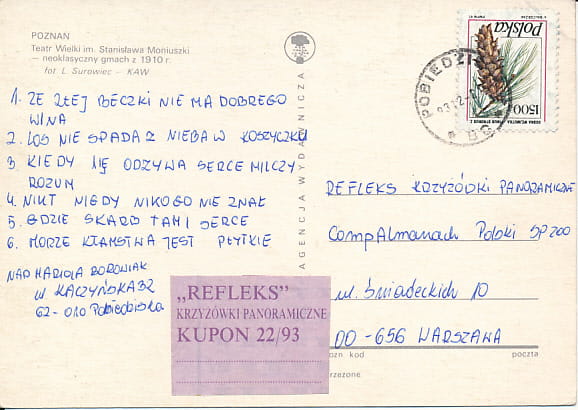 POZNAN
Teatr Wielki im. Stanisława Moniuszki
— neoklasyczny gmach z 1910 r.
fot L. Surowiec - KAW
1. ZE ZŁEJ BECZKI NIE MA DOBREGO
WINA
2. LOS NIE SPADA Z NIEBA W KOSZYCZKU
3. KIEDY SIĘ ODZYWA SERCE MILCZY
ROZUM
4. NIKT NIGDY NIKOGO NIE ZNAŁ
5. GDZIE SKARB TAM I SERCE
6. MORZE KŁAMSTWA JEST PŁYTKIE
NAD MARIOLA BOROWIAK
W KACZYŃSKA 32
62-010 Pobiedziska
„REFLEKS"
KRZYŻÓWKI PANORAMICZNE
KUPON 22/93
AGENCJA WYDAWNICZA
POLSKA
1500 zł
POBIEDZIS
REFLEKS KRZYŻÓDKI PANORAMICZNE
CompAlmanach Polski SP ZOO
ul. Śniadeckich 10
00-656 WARSZAWA
kod
poczta
rzezone